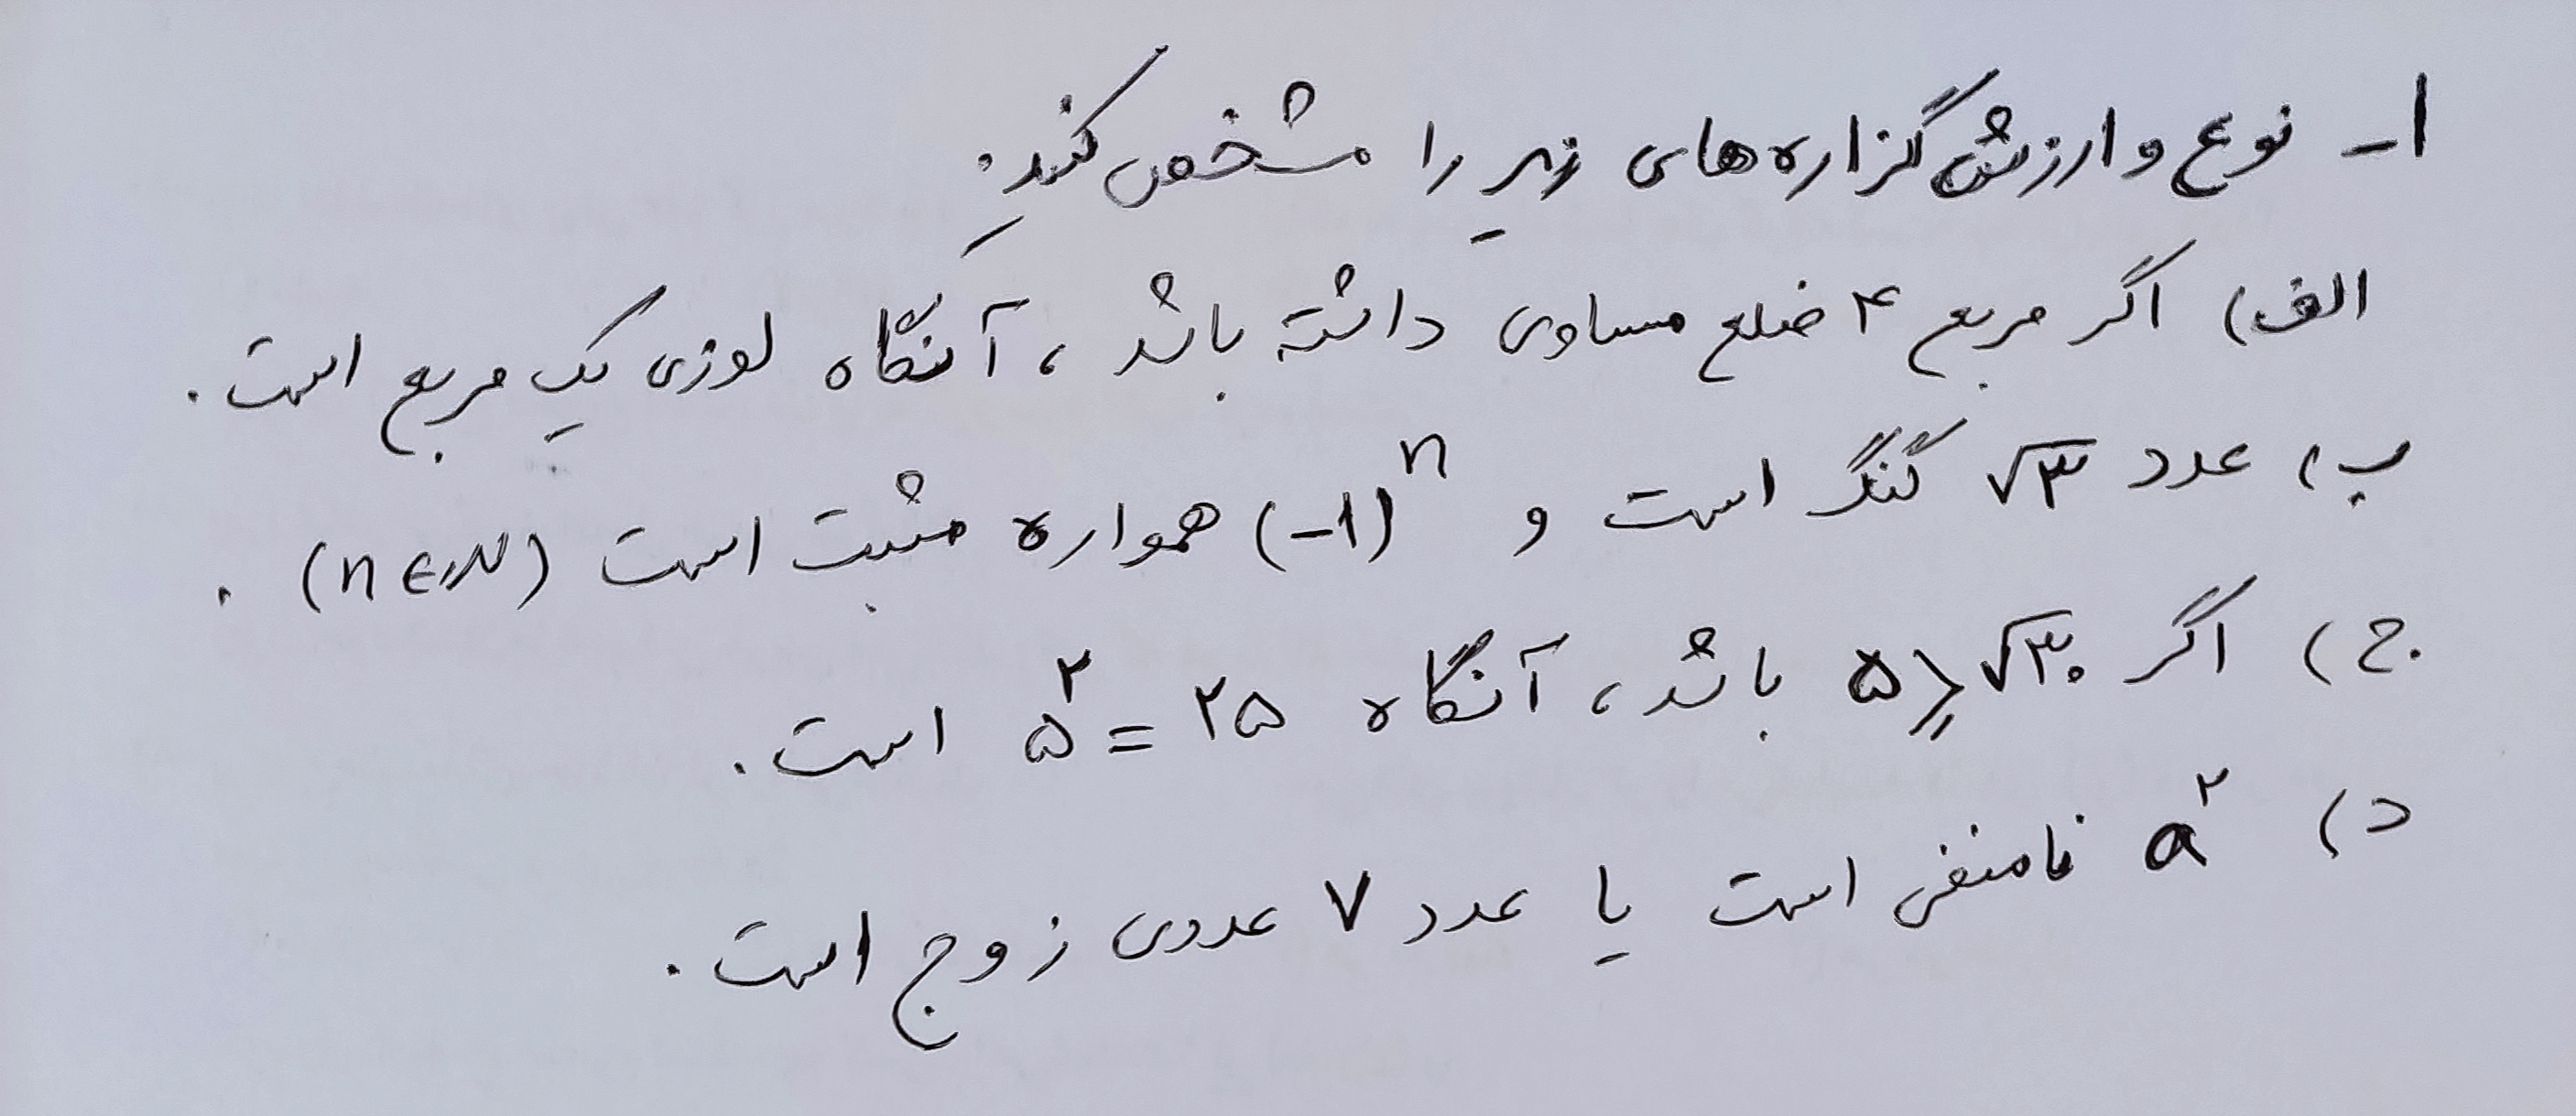 ۱- نوع و ارزش گزاره‌های زیر را مشخص کنید.
الف) اگر مربع ۴ ضلع مساوی داشته باشد، آنگاه لوزی یک مربع است.
ب) عدد √۳ گنگ است و (-۱)ⁿ همواره مثبت است (n∈ℕ).
ج) اگر ۵ ≥ √۳۰ باشد، آنگاه ۵² = ۲۵ است.
د) a² نامنفی است یا عدد ۷ عددی زوج است.